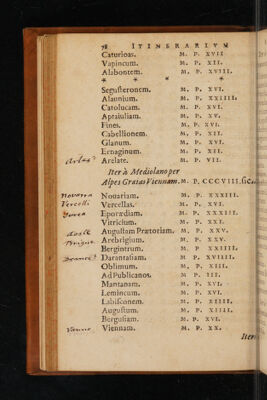 78 ITINERARIVM
Caturigas. M. P. XVII
Vapincum. M. P. XII.
Alabontem. M. P. XVIII.
* * * *
Segusteronem. M. P. XVI.
Alaunium. M. P. XXIIII.
Catolucam. M. P. XVI.
Aptaiuliam. M. P. XV.
Fines. M. P. XVI.
Cabellionem. M. P. XII.
Glanum. M. P. XVI.
Ernaginum. M. P. XII.
Arelate. M. P. VII.
Iter à Mediolano per
Alpes Graias Viennam. M. P. CCCVIII. sic.
Novarra Nouariam. M. P. XXXIII.
Vercelli Vercellas. M. P. XVI.
Iurea Eporædiam. M. P. XXXIII.
Vitricium. M. P. XXI.
Augustam Prætoriam. M. P. XXV.
Arebrigium. M. P. XXV.
Bergintrum. M. P. XXIIII.
Darantasiam. M. P. XVIIII.
Oblimum. M. P. XIII.
Ad Publicanos. M. P. III.
Mantanam. M. P. XVI.
Lemincum. M. P. XVI.
Labisconem. M. P. XIIII.
Augustum. M. P. XIIII.
Bergusiam. M. P. XVI.
Vienne Viennam. M. P. XX.
Iter